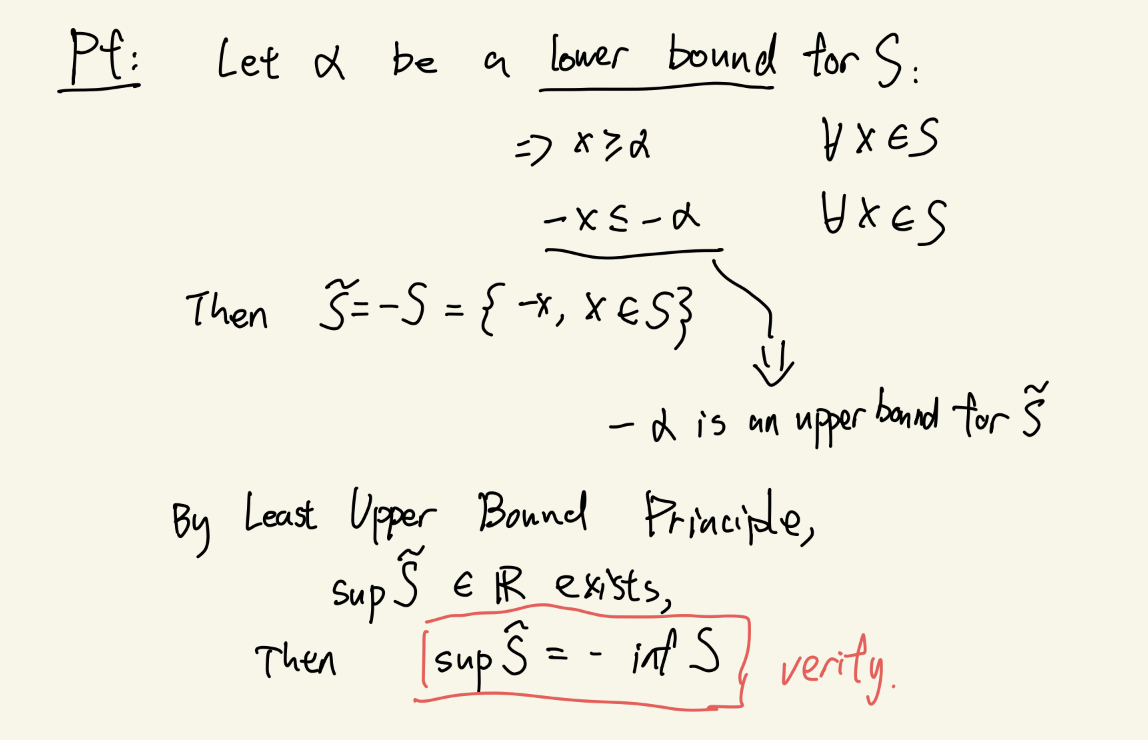 Pf: Let α be a lower bound for S:
=> x ≥ α ∀ x ∈ S
-x ≤ -α ∀ x ∈ S
Then S̃ = -S = { -x, x ∈ S}
- α is an upper bound for S̃
By Least Upper Bound Principle,
sup S̃ ∈ ℝ exists,
Then sup Ŝ = - inf S verify.